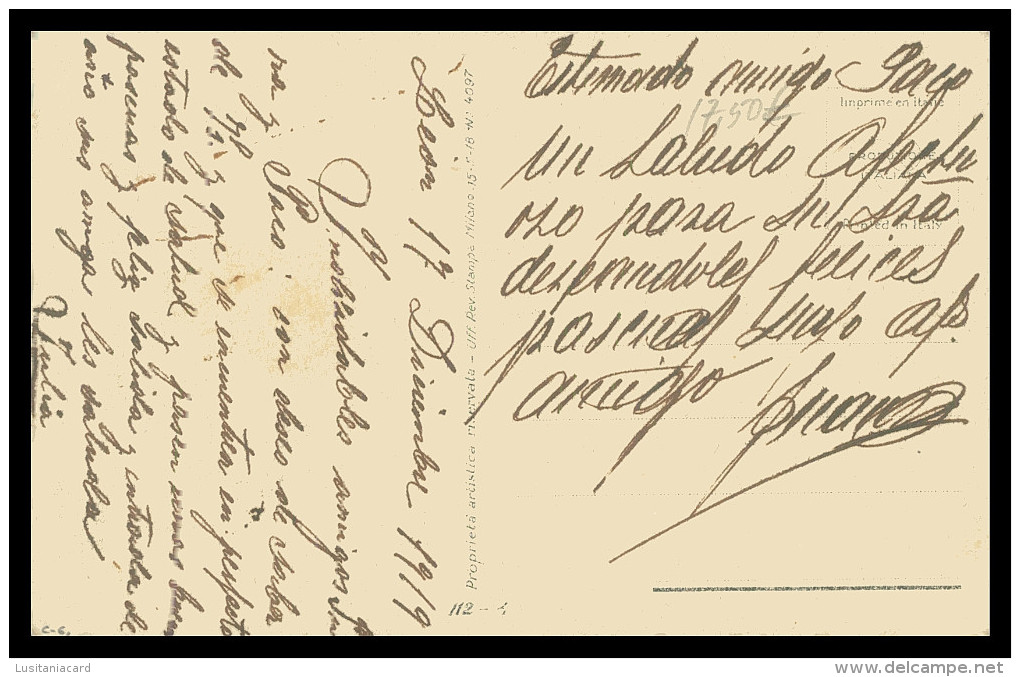 Estimado amigo Paco
un Saludo Afectu
oso para su Sra
deseandoles felices
pascuas suyo afo.
amigo
Juan
17,50
Imprimé en Italie
PRODUZIONE
ITALIANA
Printed in Italy
Proprietà artistica riservata - Uff. Rev. Stampa Milano. 15-5-18-N: 4097
112 - 4
Leon 17 Diciembre 1919
Inolvidables amigos
y Paco con deseo de saber
de Vs. y que se encuentren en perfecto
estado de Salud y pasen unas buenas
pascuas y feliz salida y entrada de
año sus amiga les saluda
Julia
C-6.
Lusitaniacard
www.delcampe.net